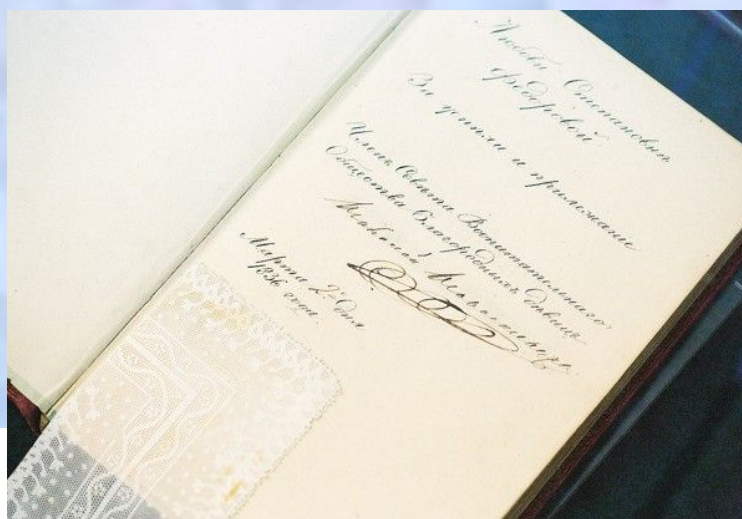 Любови Степановнѣ
Ѳедоровой
За успѣхи и прилежание
Членъ Совѣта Воспитательнаго
Общества Благородныхъ дѣвицъ
Марта 2 дня
1836 года.